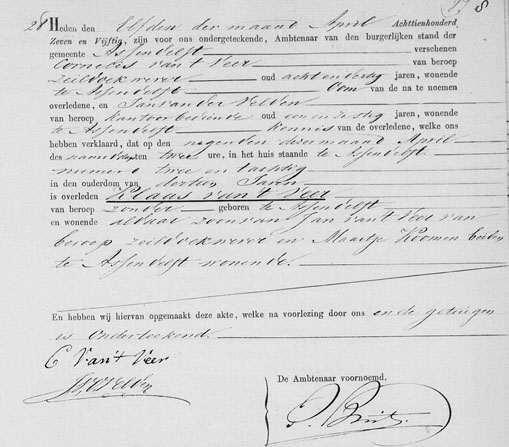 28 Heden den Elfden der maand April Achttienhonderd
Zeven en Vijftig, zijn voor ons ondergeteekende, Ambtenaar van den burgerlijken stand der
gemeente Assendelft verschenen
Cornelis van't Veer van beroep
zeildoekwever oud acht en dertig jaren, wonende
te Assendelft Oom van de na te noemen
overledene, en Jan van der Velden
van beroep kantoorbediende oud een en zestig jaren, wonende
te Assendelft Kennis van de overledene, welke ons
hebben verklaard, dat op den negenden dezer maand April
des namiddags ten twee ure, in het huis staande te Assendelft
numero twee en tachtig
in den ouderdom van dertien Jaren
is overleden Klaas van't Veer
van beroep zonder geboren te Assendelft
en wonende aldaar zoon van Jan van't Veer van
beroep zeildoekwever en Maartje Koomen beiden
te Assendelft wonende.
En hebben wij hiervan opgemaakt deze akte, welke na voorlezing door ons en de getuigen
is Onderteekend.
C Van't Veer
De Ambtenaar voornoemd.